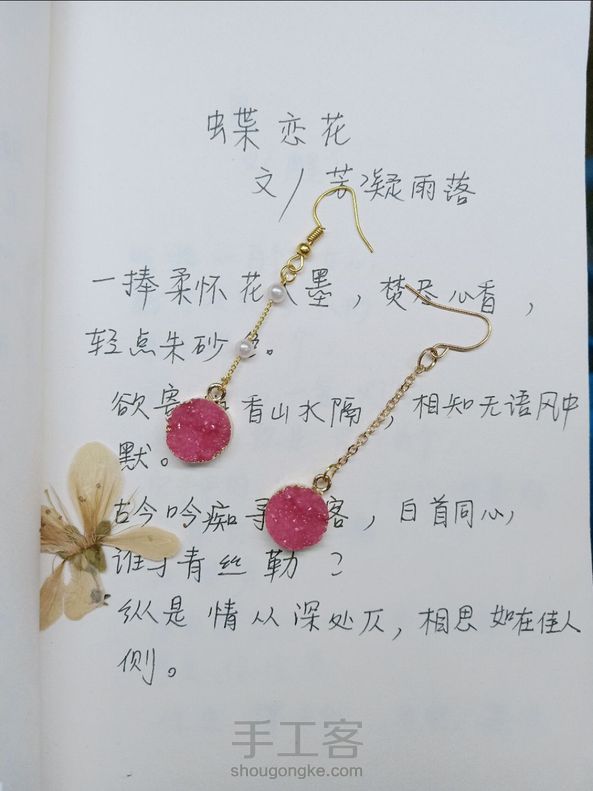 蝶恋花
文/芳凝雨落
一捧柔怀花墨,焚尽心香,
轻点朱砂。
欲寄香山水隔,相知无语风中
默。
古今吟痴寻客,白首同心,
谁于青丝勒?
纵是情从深处仄,相思如在佳人
侧。
手工客
shougongke.com